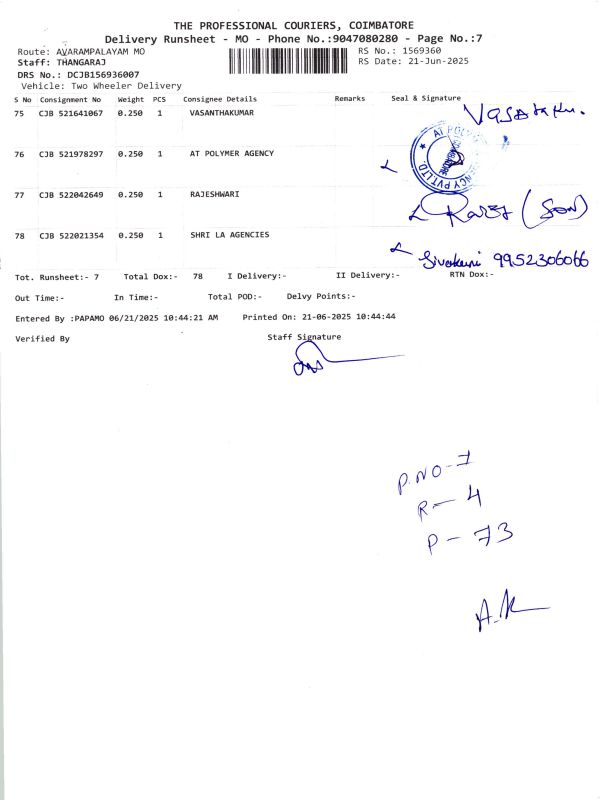 THE PROFESSIONAL COURIERS, COIMBATORE
Delivery Runsheet - MO - Phone No.:9047080280 - Page No.:7
Route: AVARAMPALAYAM MO RS No.: 1569360
Staff: THANGARAJ RS Date: 21-Jun-2025
DRS No.: DCJB156936007
Vehicle: Two Wheeler Delivery
S No Consignment No Weight PCS Consignee Details Remarks Seal & Signature
75 CJB 521641067 0.250 1 VASANTHAKUMAR
76 CJB 521978297 0.250 1 AT POLYMER AGENCY
77 CJB 522042649 0.250 1 RAJESHWARI (Son)
78 CJB 522021354 0.250 1 SHRI LA AGENCIES
9952306066
Tot. Runsheet:- 7 Total Dox:- 78 I Delivery:- II Delivery:- RTN Dox:-
Out Time:- In Time:- Total POD:- Delvy Points:-
Entered By :PAPAMO 06/21/2025 10:44:21 AM Printed On: 21-06-2025 10:44:44
Verified By Staff Signature
P.NO-7
R-4
P-73